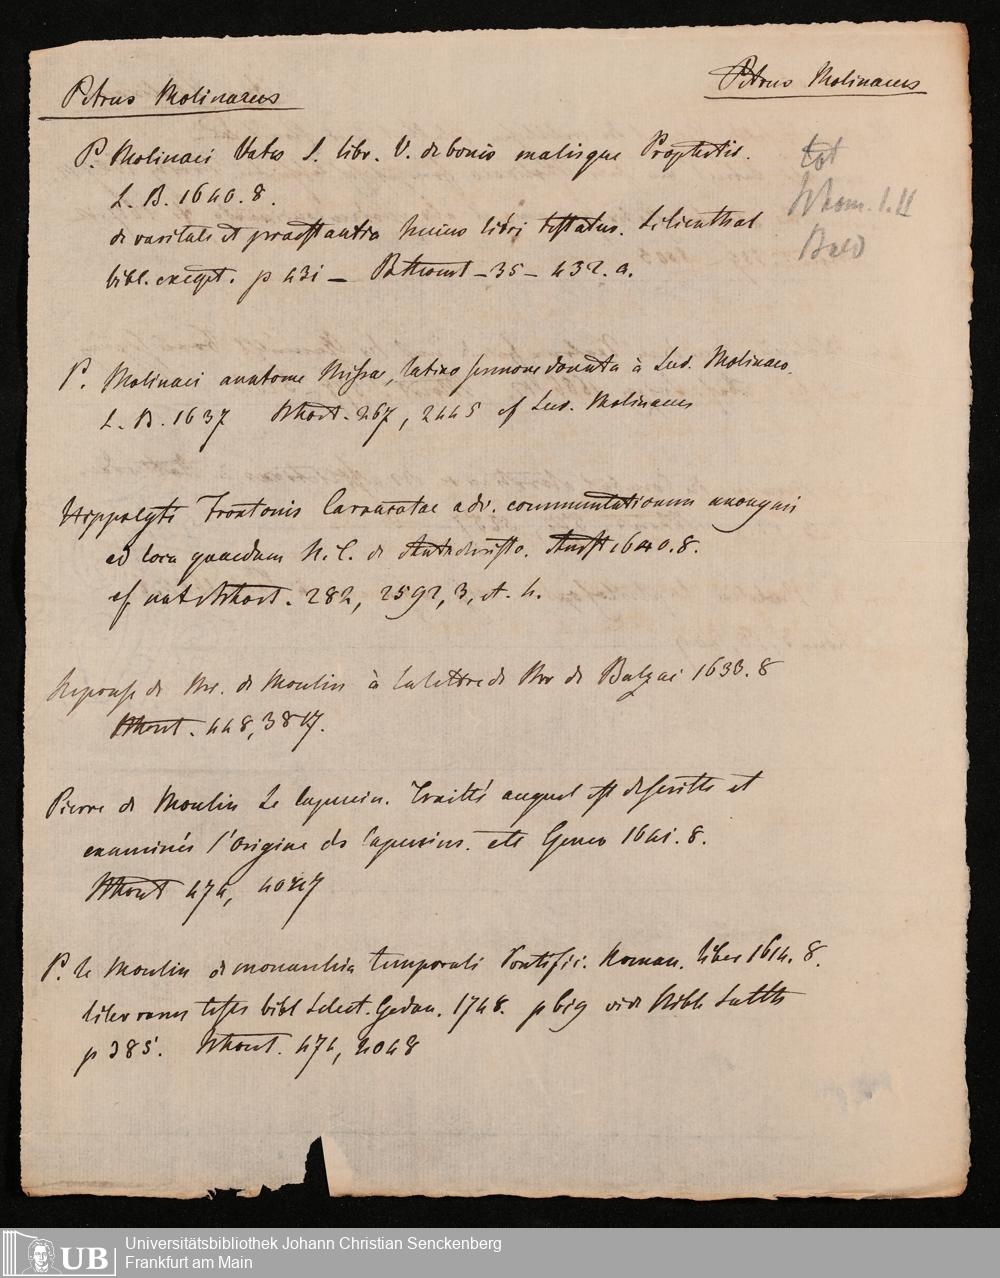 Petrus Molinaeus
Petrus Molinaeus
P. Molinaei Vates S. libr. V. de bonis malisque Prophetis.
L. B. 1640. 8.
de raritate et praestantia huius libri testatus. Lilienthal
bibl. exeget. p 431 — – 35 – 432. a.
tot
I. II
P. Molinaei anatome Missae, latino sermone donata à Lud. Molinaeo.
L. B. 1637 267, 2445 cf Lud. Molinaeus
Hippolyti Frontonis Caracotae adv. commentationem anonymi
ad loca quaedam N. T. de Antichristo. 1640. 8.
cf 282, 2592, 3, et. 4.
Reponse de Mr. de Moulin à la lettre de Mr de Balzac 1633. 8
448, 3817.
Pierre de Moulin Le Capucin. Traitté auquel est descritte et
examinés l'Origine des Capucins. etc Genev 1641. 8.
474,
P. le Moulin de monarchia temporali Pontific. Roman. liber 1614. 8.
liber rarus teste bibl Select. Gedan. 1748. p 619 vide
p 385. 474, 4048
Universitätsbibliothek Johann Christian Senckenberg
Frankfurt am Main
UB